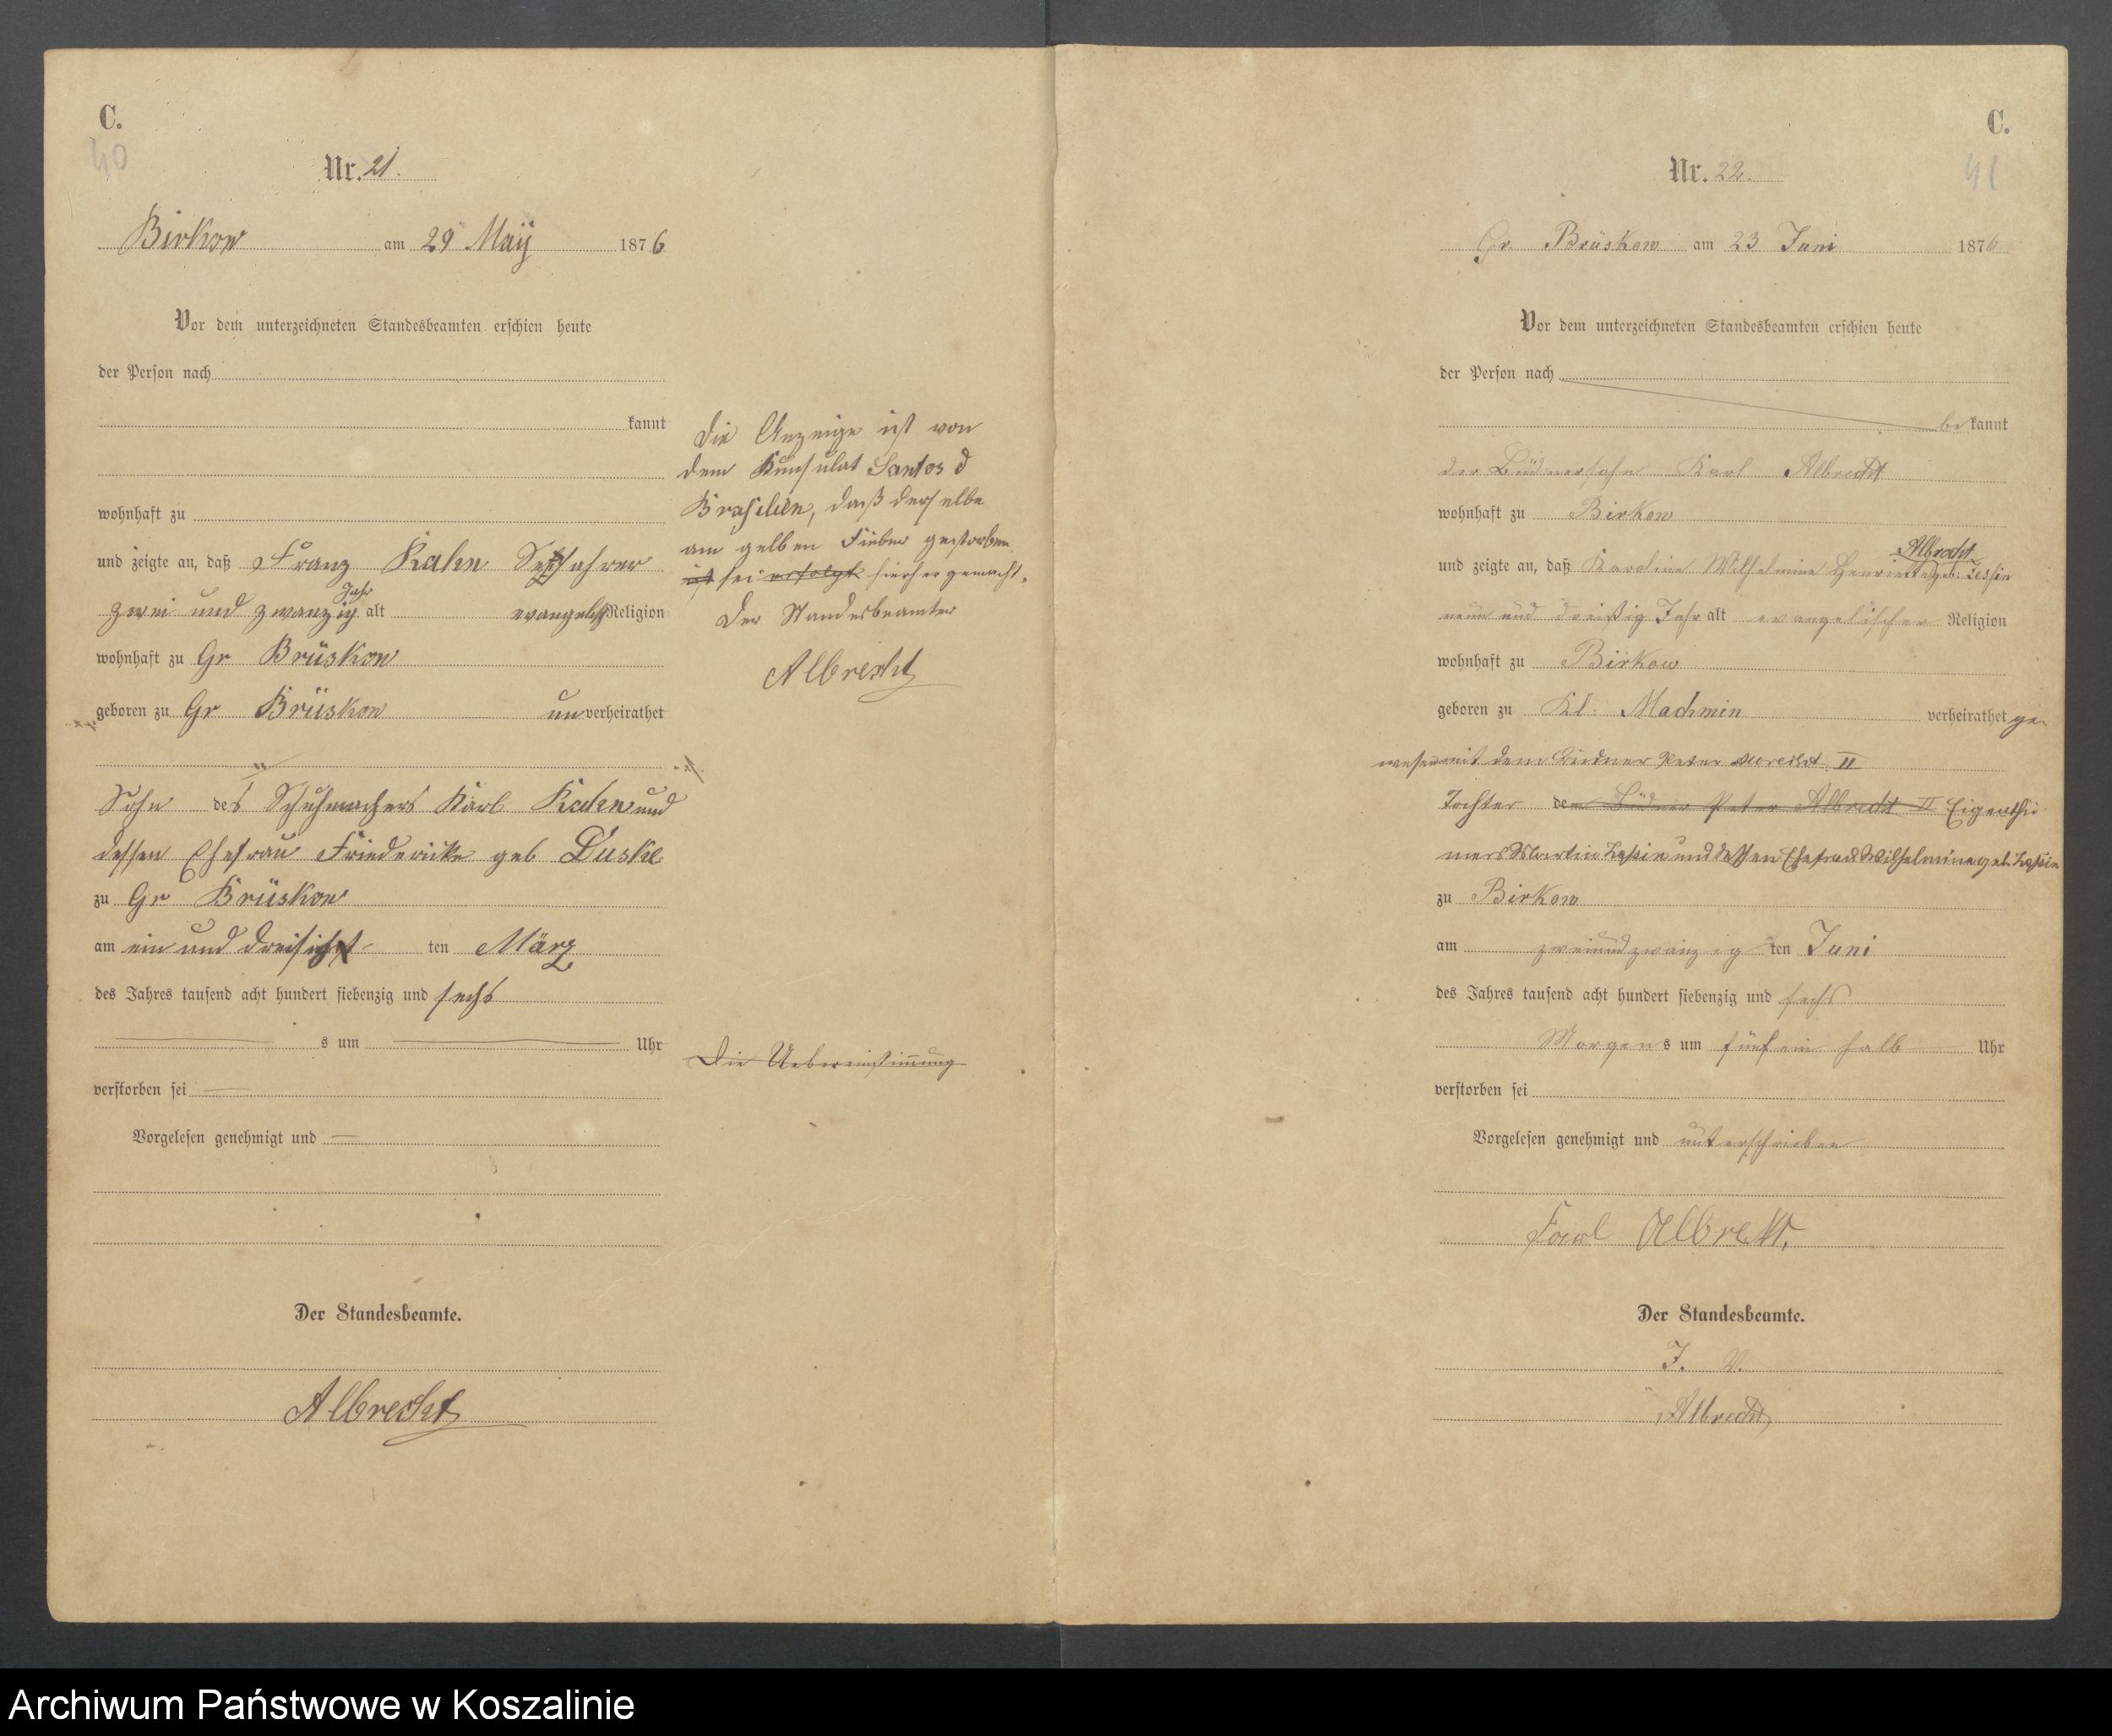 C.
40
Nr. 21.
Birkow am 29 Maij 1876
Vor dem unterzeichneten Standesbeamten erschien heute
der Person nach
kannt
wohnhaft zu
und zeigte an, daß Franz Kahn Seefahrer
Jahr
zwei und zwanzig alt evangelisch Religion
wohnhaft zu Gr Brüskow
geboren zu Gr Brüskow unverheirathet
Sohn des Schuhmachers Karl Kahn und
dessen Ehefrau Friedericke geb Duske
zu Gr Brüskow
am ein und dreisigst ten März
des Jahres tausend acht hundert siebenzig und sechs
s um Uhr
verstorben sei
Vorgelesen genehmigt und
Der Standesbeamte.
Albrecht
Die Anzeige ist von
dem Kunsulat Santos
Brasilien, daß derselbe
am gelben Fieber gestorben
ist sei erfolgt hierher gemacht.
Der Standesbeamter
Albrecht
Die Uebereinstimmung
C.
41
Nr. 22.
Gr. Brüskow am 23 Juni 1876
Vor dem unterzeichneten Standesbeamten erschien heute
der Person nach
bekannt
der Büdnersohn Karl Albrecht
wohnhaft zu Birkow
Albrecht
und zeigte an, daß Karoline Wilhelmine Henriette geb: Zessin
neun und dreißig Jahr alt evangelischer Religion
wohnhaft zu Birkow
geboren zu Kl. Machmin verheirathet ge-
wesen mit dem Büdner Peter Albrecht II
Tochter dem Büdner Peter Albrecht II Eigenthü
mers Martin Zessin und dessen Ehefrau Wilhelmine geb. Zessin
zu Birkow
am zweiundzwanzig ten Juni
des Jahres tausend acht hundert siebenzig und sechs
Morgens um fünf ein halb Uhr
verstorben sei
Vorgelesen genehmigt und unterschrieben
Karl Albrecht.
Der Standesbeamte.
J. V.
Albrecht
Archiwum Państwowe w Koszalinie